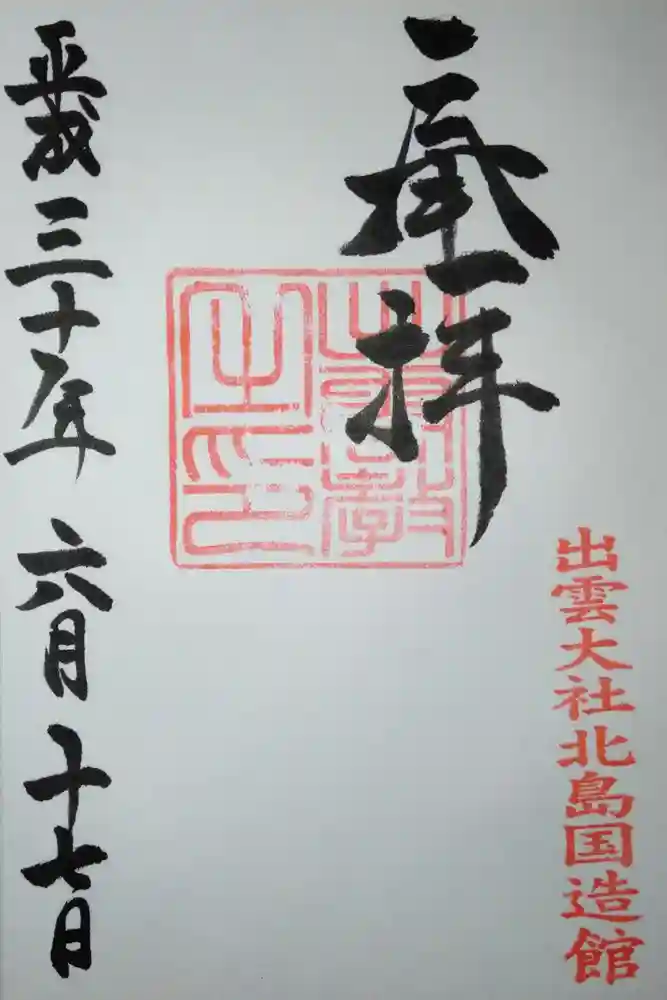 出雲大社北島国造館
奉拝
出雲教
之印
平成三十年六月十七日